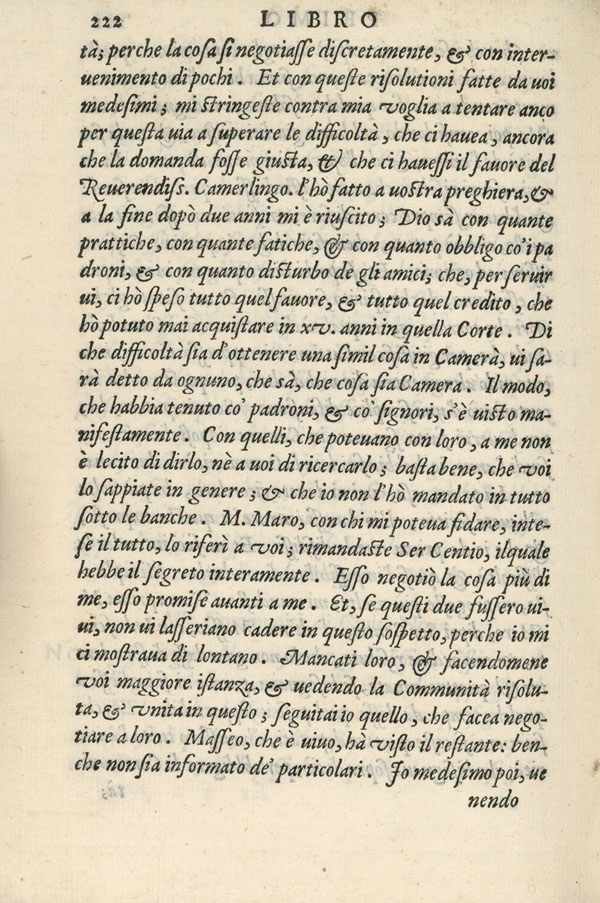 222 LIBRO
tà; perche la cosa si negotiasse discretamente, & con inter-
uenimento di pochi. Et con queste risolutioni fatte da uoi
medesimi; mi stringeste contra mia voglia a tentare anco
per questa uia a superare le difficoltà, che ci hauea, ancora
che la domanda fosse giusta, & che ci hauessi il fauore del
Reuerendiss. Camerlingo. l'hò fatto a uostra preghiera, &
a la fine dopò due anni mi è riuscito; Dio sà con quante
prattiche, con quante fatiche, & con quanto obbligo co'i pa
droni, & con quanto disturbo de gli amici; che, per seruir
ui, ci hò speso tutto quel fauore, & tutto quel credito, che
hò potuto mai acquistare in xv. anni in quella Corte. Di
che difficoltà sia d'ottenere una simil cosa in Camerà, ui sa-
rà detto da ognuno, che sà, che cosa sia Camera. Il modo,
che habbia tenuto co' padroni, & co' signori, s'è uisto ma-
nifestamente. Con quelli, che poteuano con loro, a me non
è lecito di dirlo, nè a uoi di ricercarlo; basta bene, che voi
lo sappiate in genere; & che io non l'hò mandato in tutto
sotto le banche. M. Maro, con chi mi poteua fidare, inte-
se il tutto, lo riferì a voi; rimandaste Ser Centio, ilquale
hebbe il segreto interamente. Esso negotiò la cosa più di
me, esso promise auanti a me. Et, se questi due fussero ui-
ui, non ui lasseriano cadere in questo sospetto, perche io mi
ci mostraua di lontano. Mancati loro, & facendomene
voi maggiore istanza, & uedendo la Communità risolu-
ta, & vnita in questo; seguitai io quello, che facea nego-
tiare a loro. Masseo, che è uiuo, hà visto il restante: ben-
che non sia informato de' particolari. Io medesimo poi, ue
nendo